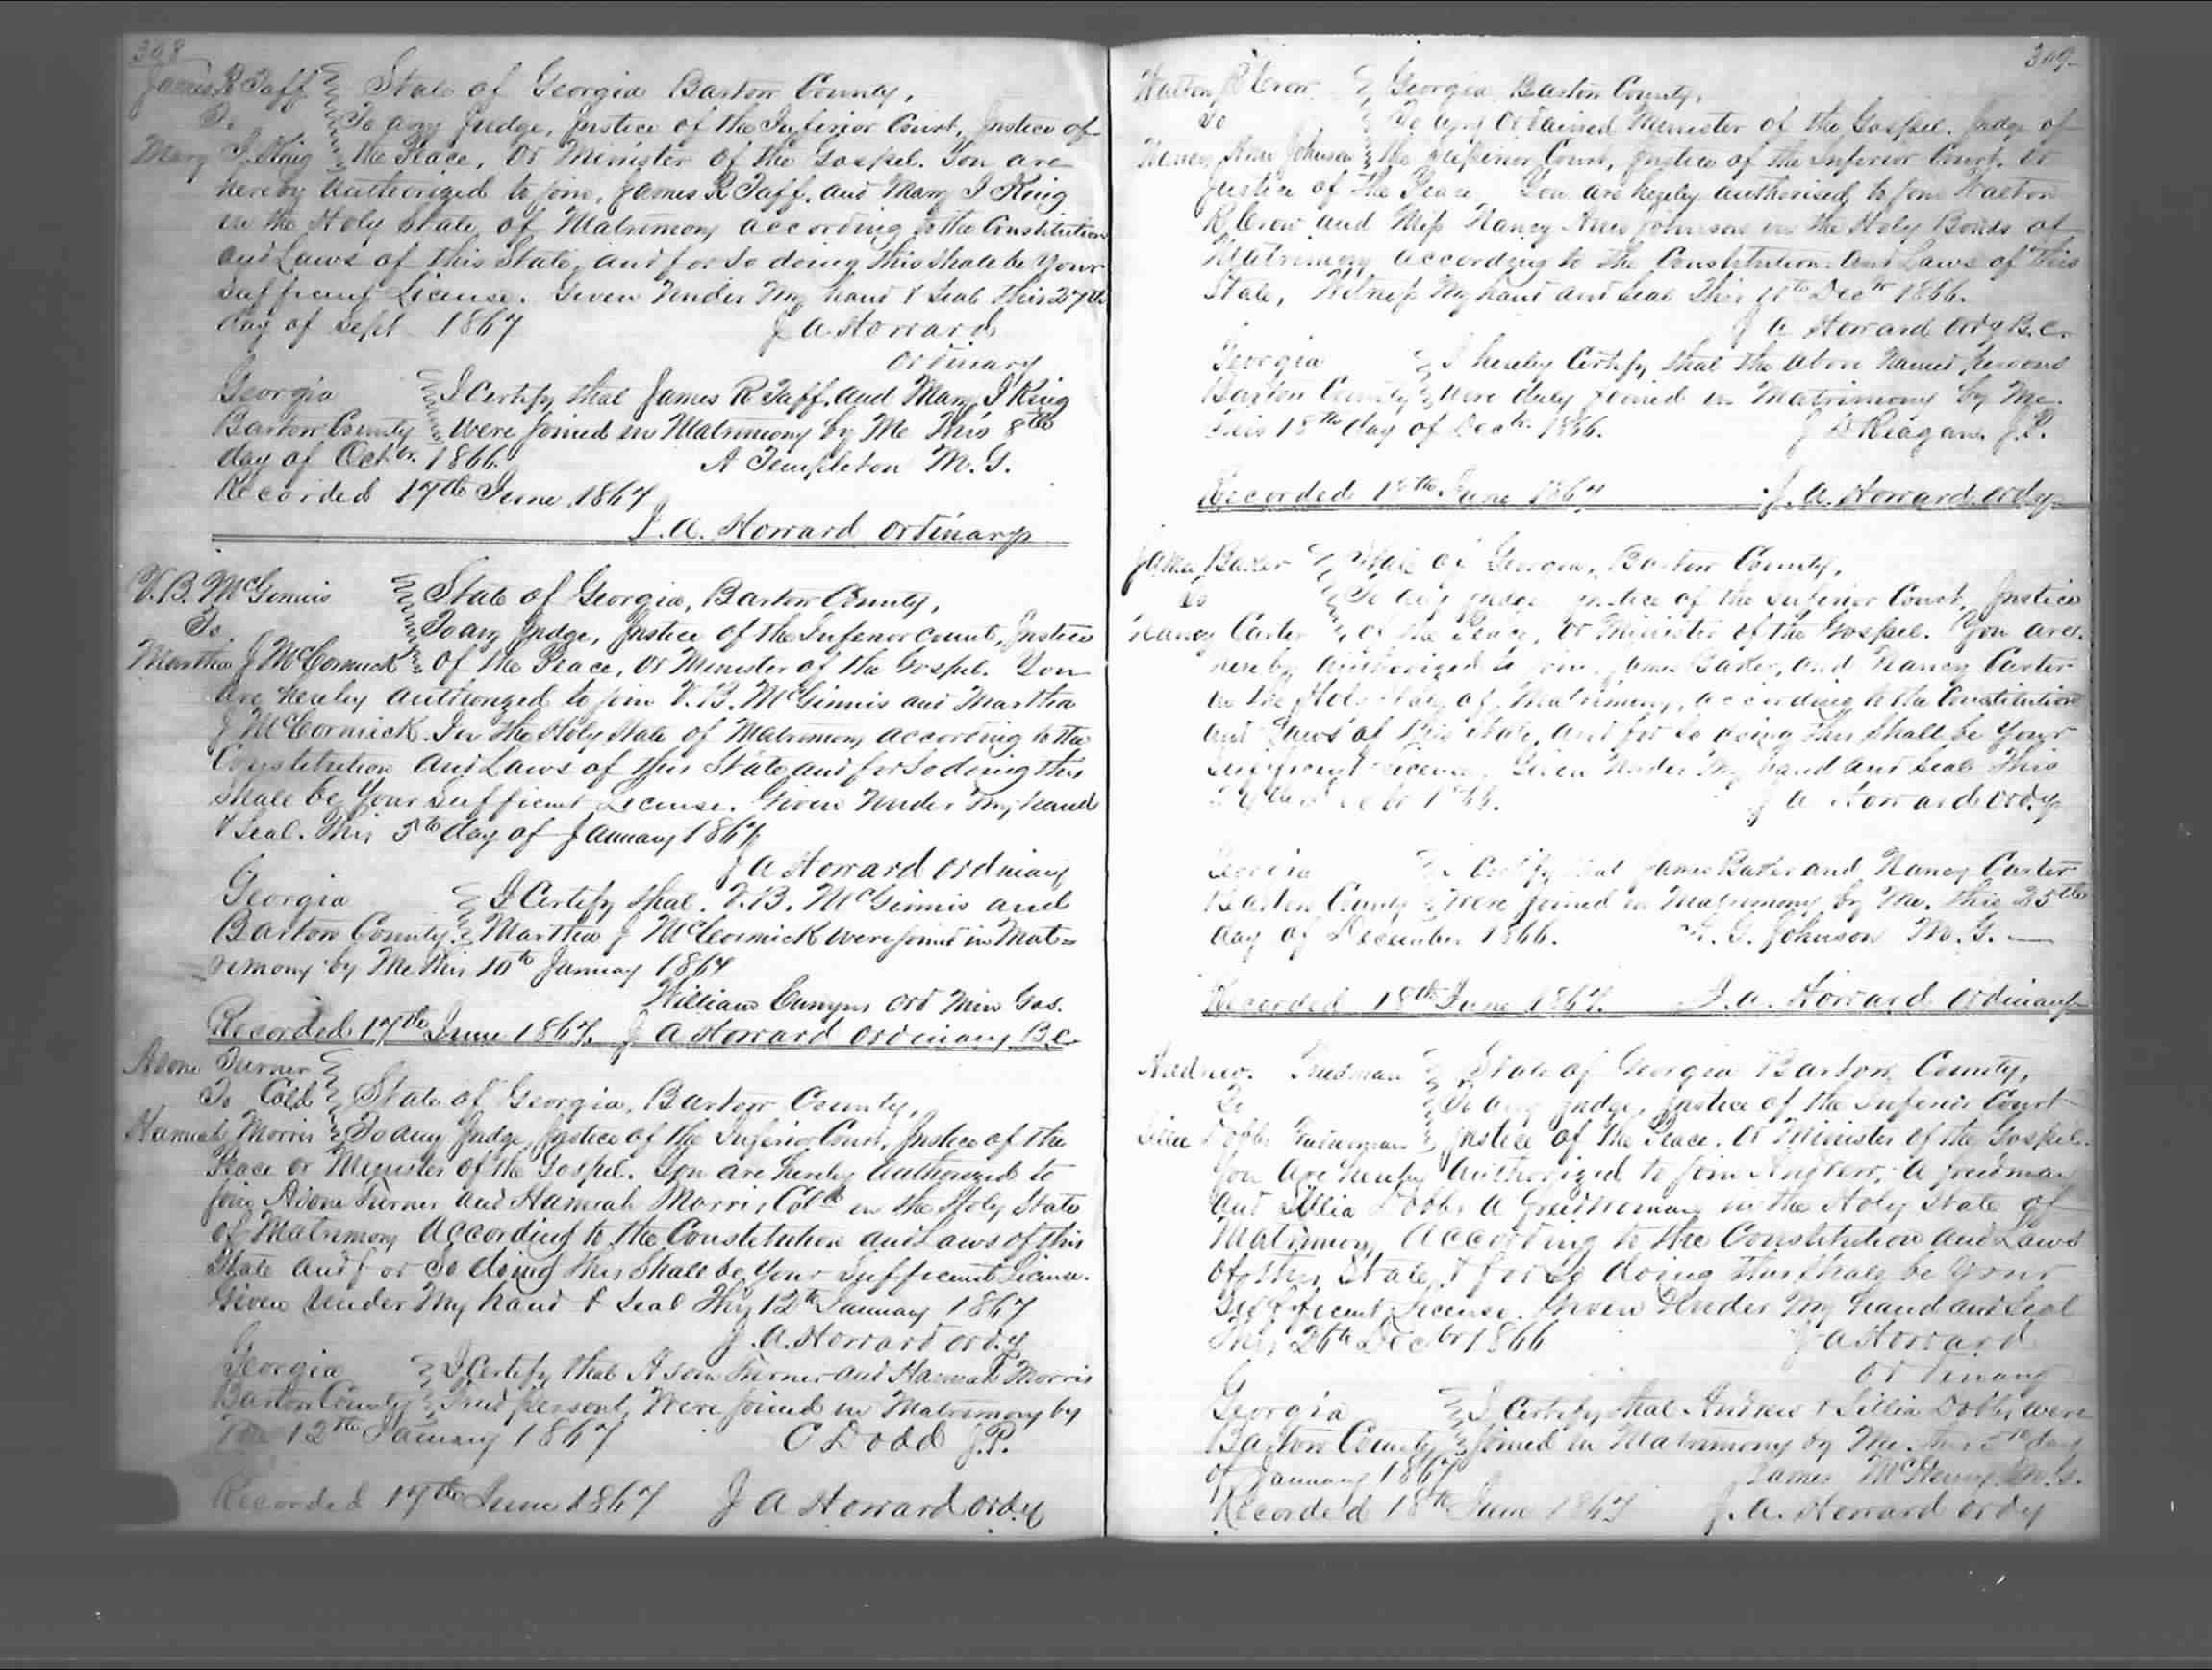 308
James R Taff State of Georgia Bartow County,
To To any Judge, Justice of the Inferior Court, Justice of
Mary I. King the Peace, Or Minister of the Gospel. You are
hereby Authorized to join, James R Taff, and Mary I King
in the Holy State, of Matrimony according to the Constitution
and Laws of this State, and for So doing this Shall be Your
Sufficient License. Given Under My hand & Seal this 27th
day of Sept 1867 J A Howard
Ordinary
Georgia I Certify that James R Taff, and Mary I King
Bartow County were joined in Matrimony by Me This 8th
day of Octr. 1866. A Templeton M. G.
Recorded 17th June, 1867
J. A. Howard Ordinary
V. B. McGinnis State of Georgia, Bartow County,
To To any Judge, Justice of the Inferior Court, Justice
Martha J McCormick of the Peace, Or Minister of the Gospel. You
are hereby Authorized to join V. B. McGinnis and Martha
J McCormick. In the Holy State of Matrimony according to the
Constitution and Laws of this State and for So doing this
Shall be Your Sufficient License. Given Under My hand
& Seal. This 5th day of January 1867
J A Howard Ordinary
Georgia I Certify that. V. B. McGinnis and
Bartow County. Martha J McCormick were joined in Mat=
rimony by Me this 10th January 1867
William Ord Min Gos.
Recorded 17th June 1867. J A Howard Ordinary B. C.
Turner
To Cold State of Georgia, Bartow County,
Hannah Morris To any Judge, Justice of the Inferior Court, Justice of the
Peace or Minister of the Gospel. You are hereby Authorized to
join Turner and Hannah Morris Cold in the Holy State
of Matrimony According to the Constitution and Laws of this
State and for So doing this Shall be Your Sufficient License.
Given Under My hand & Seal This 12th January 1867
J. A. Howard Ordy
Georgia I Certify that Turner and Hannah Morris
Bartow County persons, Were joined in Matrimony by
12th January 1867 C Dodd J. P.
Recorded 17th June 1867 J A Howard Ordy
309
Walton R Crow Georgia Bartow County,
To To any Ordained Minister of the Gospel. Judge of
Nancy Ann Johnson the Superior Court, Justice of the Inferior Court, Or
Justice of the Peace You are hereby authorised, to join Walton
R Crow and Miss Nancy Ann Johnson in the Holy Bonds of
Matrimony according to the Constitution and Laws of this
State, Witness My hand and Seal This Decr 1866.
J A Howard Ordy B. C.
Georgia I hereby Certify that the above Named persons
Bartow County were duly joined in Matrimony by Me.
This 18th day of Decr. 1866. J Reagan J. P.
Recorded June 1867 J. A. Howard Ordy
James Baker State of Georgia, Bartow County,
To To any Judge Justice of the Inferior Court, Justice
Nancy Carter of the Peace, Or Minister of the Gospel. You are
hereby authorized to join James Baker, and Nancy Carter
in the Holy State of Matrimony, according to the Constitution
and Laws of this State, and for So doing this Shall be Your
Sufficient License, Given Under My hand and Seal This
J A Howard Ordy
Georgia I Certify that James Baker and Nancy Carter
Bartow County were joined in Matrimony by Me. This 25th
day of December 1866. G. Johnson M. G.
Recorded 18th June 1867. J. A. Howard Ordinary
Andrew. Freedman State of Georgia Bartow County,
To To any Judge, Justice of the Inferior Court
Dobbs Justice of the Peace. Or Minister of the Gospel.
You are hereby authorized to join Andrew, A freedman
and Dobbs A in the Holy State of
Matrimony According to the Constitution and Laws
of this State, & for So doing this Shall be Your
Sufficient License. Given Under My hand and Seal
This 26th Decbr 1866 J A Howard
Ordinary
Georgia I Certify that Andrew & Dobbs were
Bartow County joined in Matrimony by Me. this day
of January 1867 James M. G.
Recorded 18th June 1867 J. A. Howard Ordy